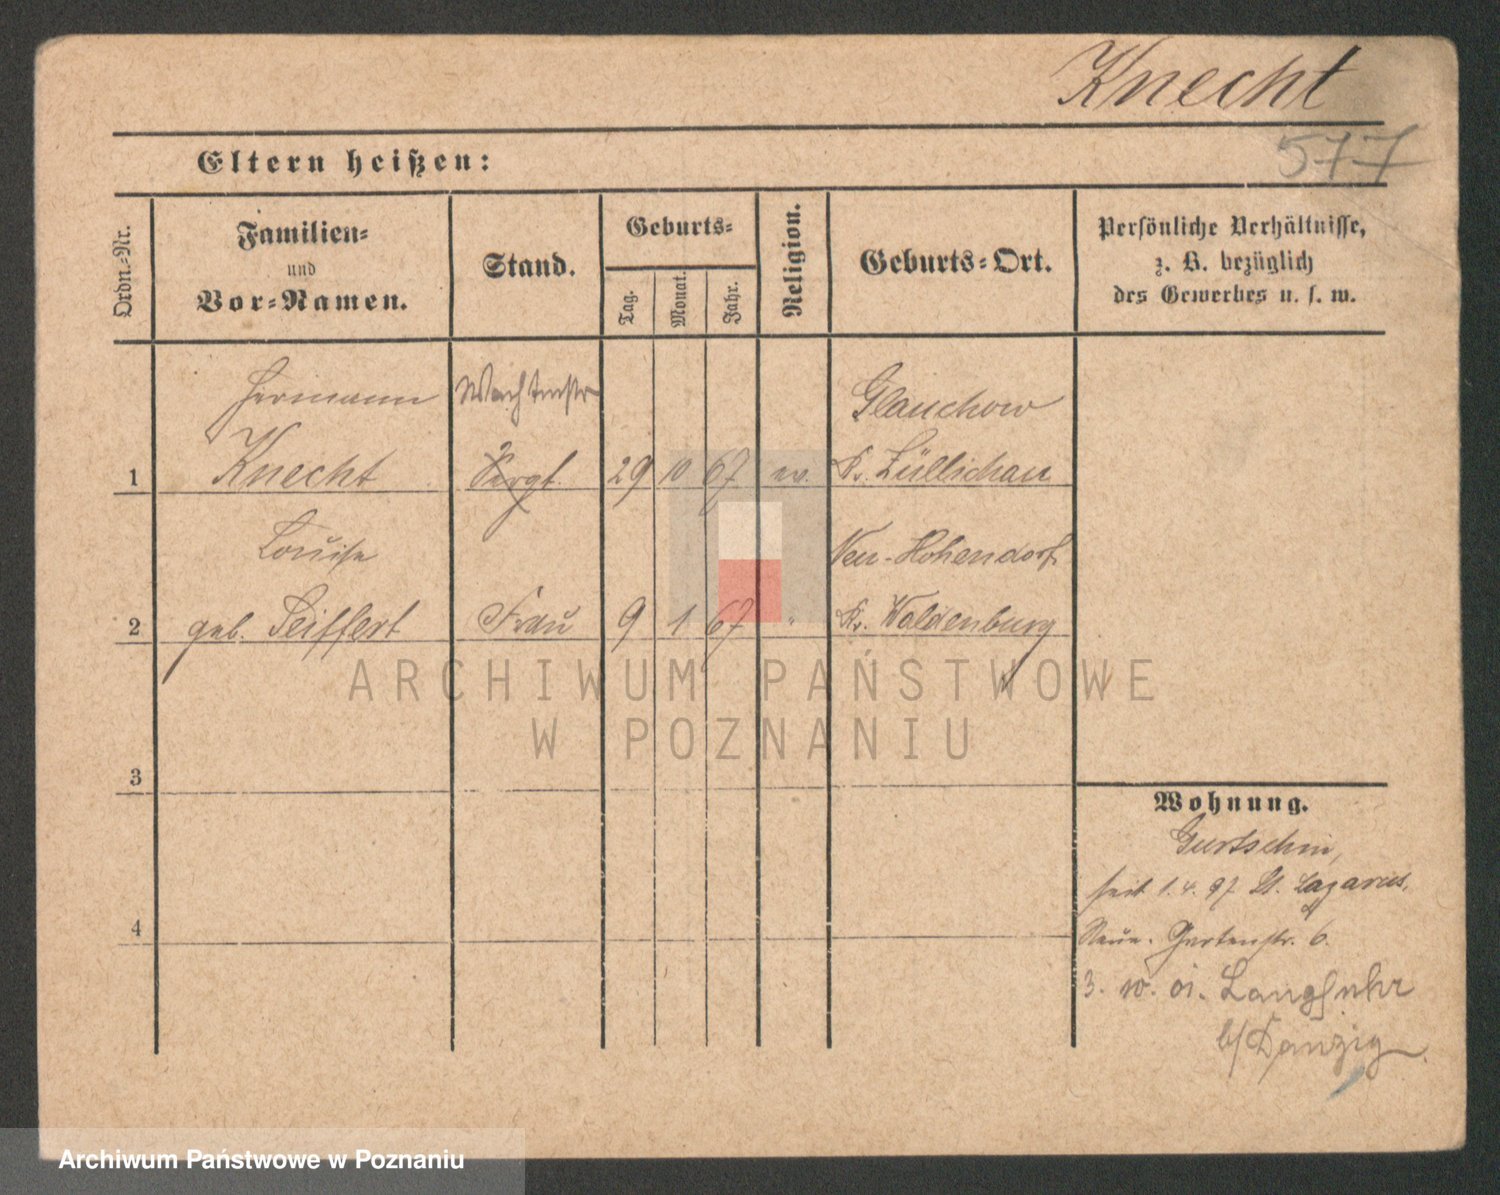 Knecht
577
Eltern heißen:
Ordn.-Nr.
Familien-
und
Vor-Namen.
Stand.
Geburts-
Tag.
Monat.
Jahr.
Religion.
Geburts-Ort.
Persönliche Verhältnisse,
z. B. bezüglich
des Gewerbes u. s. w.
Hermann Wachtmstr Glauchow
1 Knecht Sergt. 29 10 67 ev. Kr. Züllichau
Louise Neu-Hohendorf
2 geb. Seiffert Frau 9 1 67 " Kr. Waldenburg
3
4
Wohnung.
Gurtschin,
seit 1.4.97 St. Lazarus,
Neue Gartenstr. 6.
3. 10. 01. Langfuhr
b/Danzig
ARCHIWUM PAŃSTWOWE
W POZNANIU
Archiwum Państwowe w Poznaniu